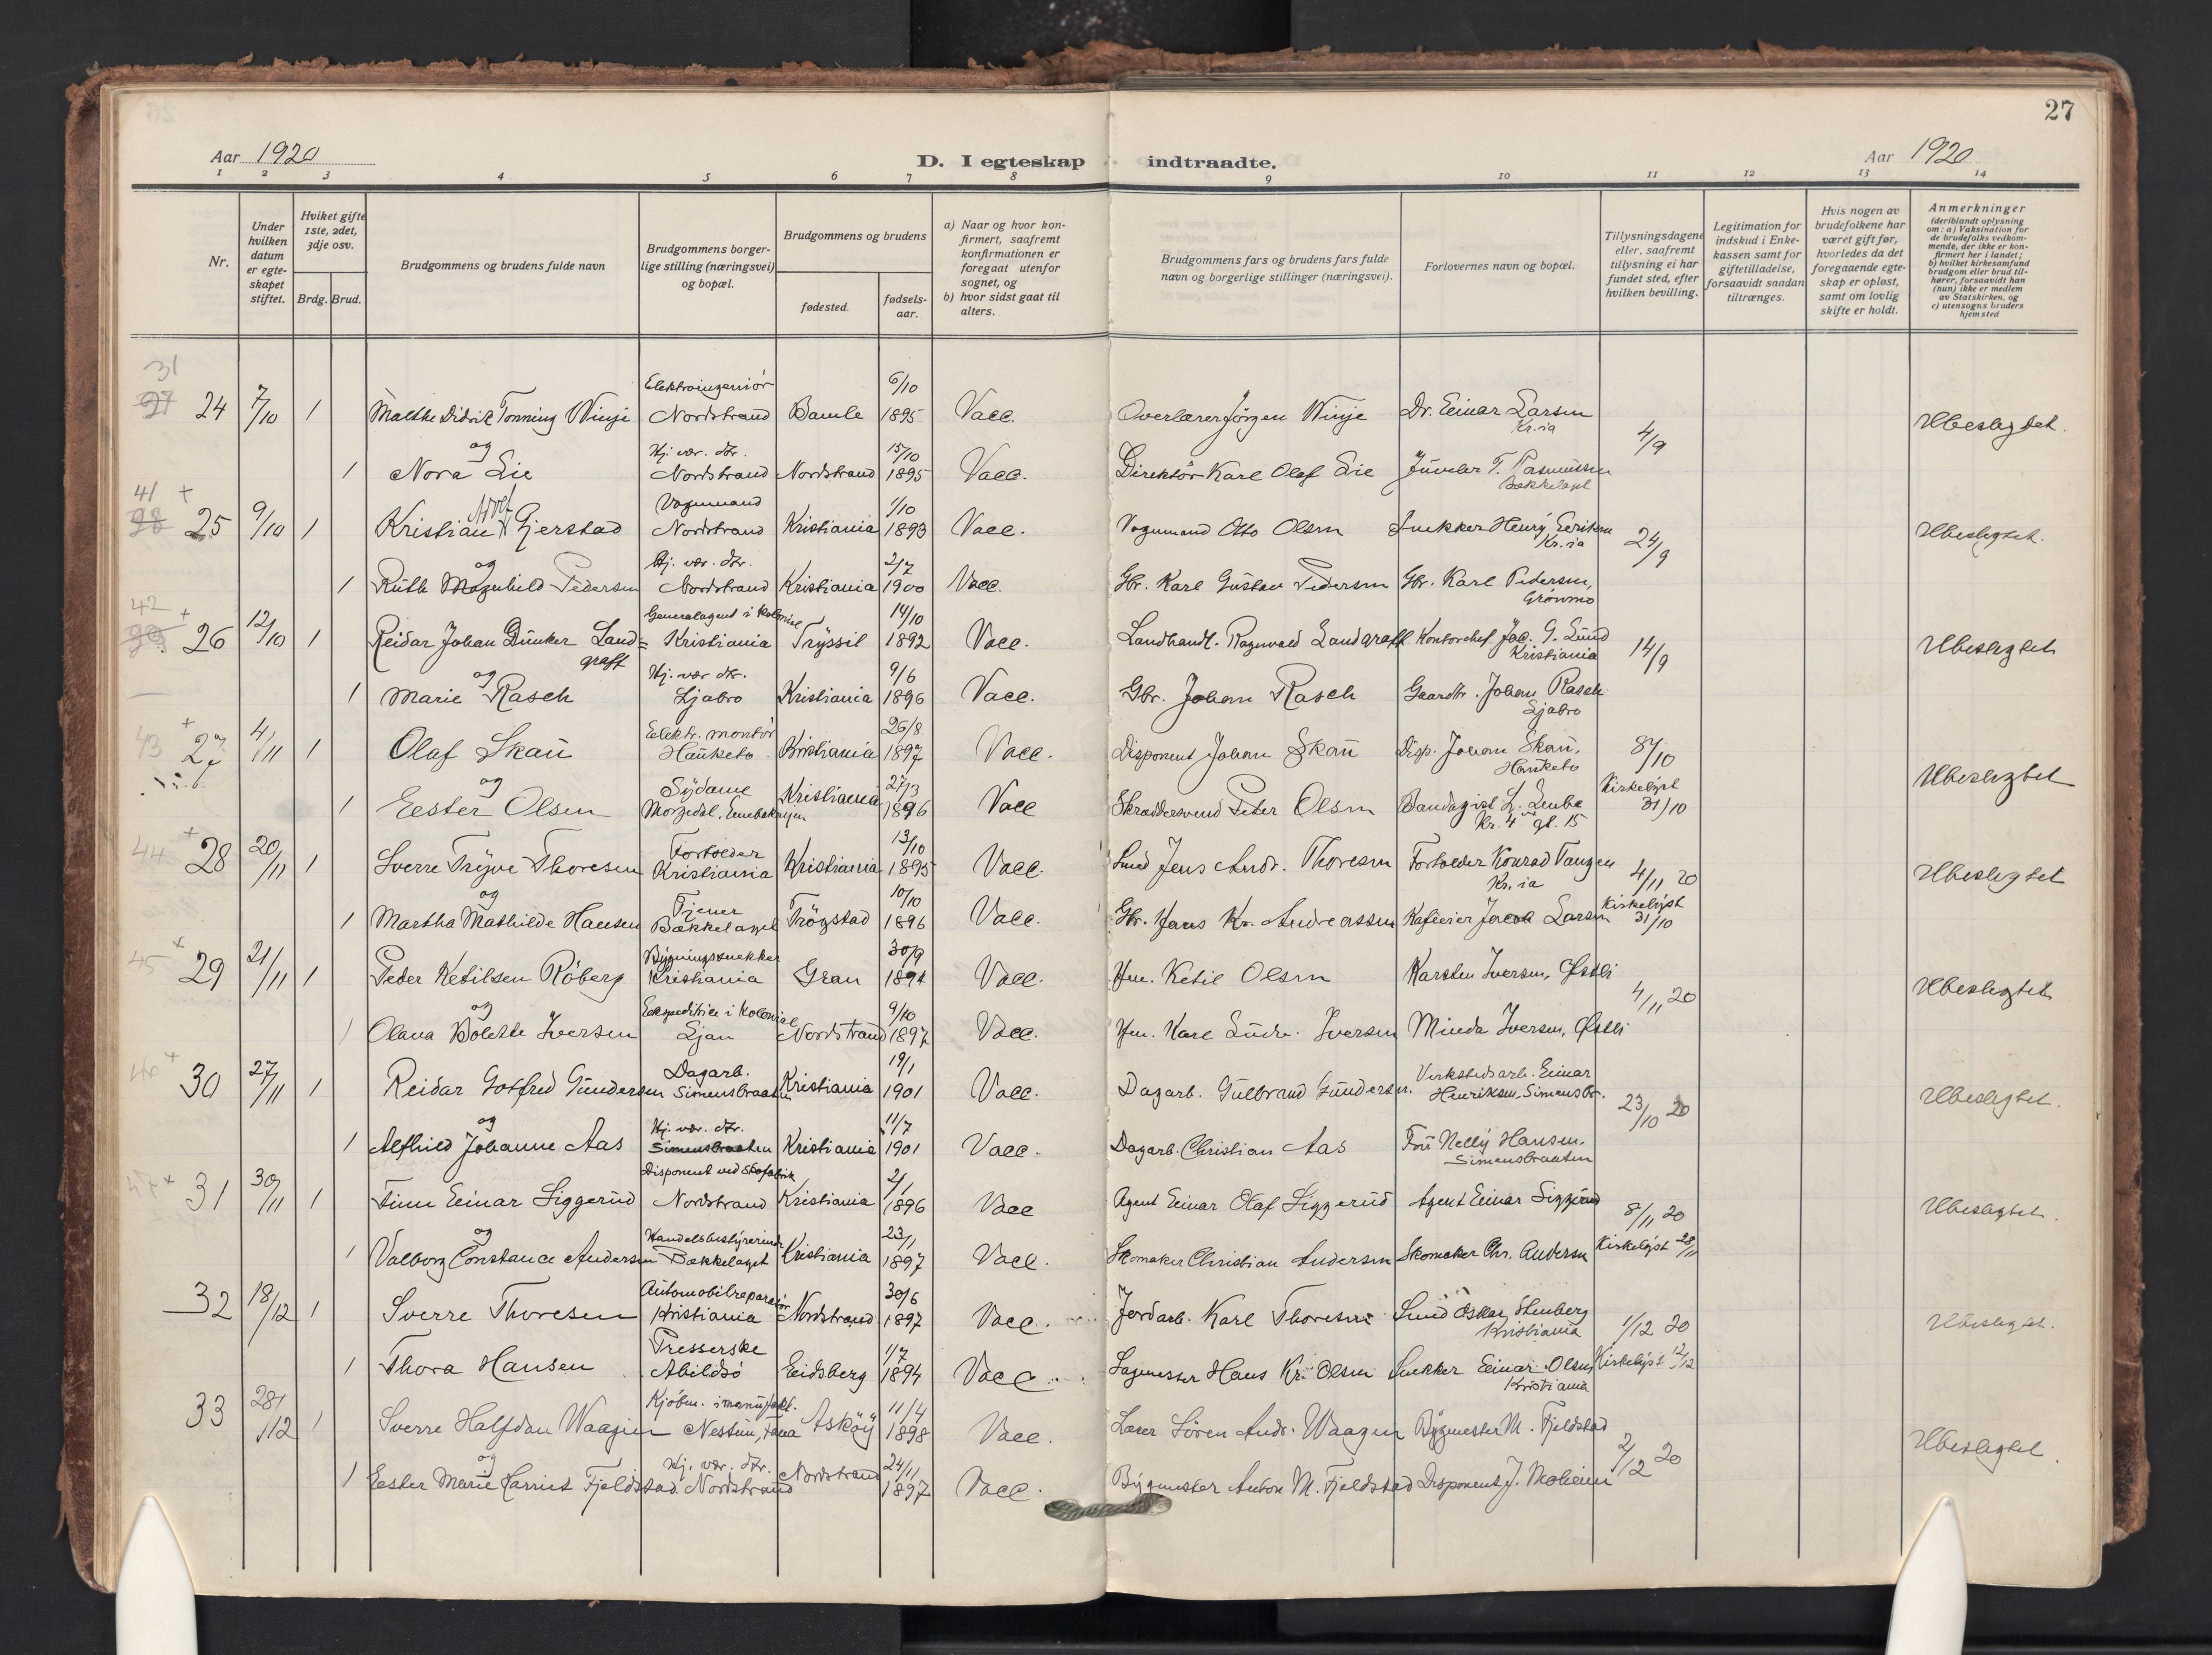 27
Aar 1920
D. I egteskap indtraadte.
Aar 1920
1 2 3 4 5 6 7 8 9 10 11 12 13 14
Nr.
Under hvilken datum er egteskapet stiftet.
Hviket gifte 1ste, 2det, 3dje osv.
Brdg. Brud.
Brudgommens og brudens fulde navn
Brudgommens borgerlige stilling (næringsvei) og bopæl.
Brudgommens og brudens
fødested.
fødselsaar.
a) Naar og hvor konfirmert, saafremt konfirmationen er foregaat utenfor sognet, og
b) hvor sidst gaat til alters.
Brudgommens fars og brudens fars fulde navn og borgerlige stillinger (næringsvei).
Forlovernes navn og bopæl.
Tillysningsdagene eller, saafremt tillysning ei har fundet sted, efter hvilken bevilling.
Legitimation for indskud i Enkekassen samt for giftetilladelse, forsaavidt saadan tiltrænges.
Hvis nogen av brudefolkene har været gift før, hvorledes da det foregaaende egteskap er opløst, samt om lovlig skifte er holdt.
Anmerkninger
(deriblandt oplysning om: a) Vaksination for de brudefolks vedkommende, der ikke er konfirmert her i landet; b) hvilket kirkesamfund brudgom eller brud tilhører, forsaavidt han (hun) ikke er medlem av Statskirken, og c) utensogns bruders hjemsted
31
27 24 7/10 1 Malthe Didrik Tonning Winje Elektroingeniör Nordstrand Bamle 6/10 1895 Vacc. Overlærer Jörgen Winje Dr. Einar Larsen Kr.ia 4/9 Ubeslegtet.
og
1 Nora Lie Hj. vær. dtr. Nordstrand Nordstrand 15/10 1895 Vacc. Direktör Karl Olaf Lie Juveler T. Rasmussen Bækkelaget
41 +
28 25 9/10 1 Kristian Adolf Gjerstad Vognmand Nordstrand Kristiania 1/10 1893 Vacc. Vognmand Otto Olsen Snekker Henry Eriksen Kr.ia 24/9 Ubeslegtet.
og
1 Ruth Magnhild Pedersen Hj. vær. dtr. Nordstrand Kristiania 2/7 1900 Vacc. Gbr. Karl Gustav Pedersen Gbr. Karl Pedersen, Grönmo
42 +
29 26 12/10 1 Reidar Johan Dunker Landgraff Generalagent i kolonial Kristiania Trysil 14/10 1892 Vacc. Landhandl. Ragnvald Landgraff Kontorchef Jac. G. Lund Kristiania 14/9 Ubeslegtet
og
1 Marie Rasch Hj. vær dtr. Ljabro Kristiania 9/6 1896 Vacc. Gbr. Johan Rasch Gaardbr. Johan Rasch Ljabro
43 + 27 4/11 1 Olaf Skau Elektr. montör Hauketo Kristiania 26/8 1897 Vacc. Disponent Johan Skau Disp. Johan Skau, Hauketo 8/10 Ubeslegtet
og
1 Ester Olsen Sydame Kristiania 27/3 1896 Vacc Skræddersvend Peter Olsen Bandagist Kirkelyst 31/10
44 + 28 20/11 1 Sverre Trygve Thoresen Forgolder Kristiania Kristiania 13/10 1895 Vacc. Smed Jens Andr. Thoresen Konrad Tangen Kr.ia 4/11 20 Ubeslegtet
og
1 Martha Mathilde Hansen Tjener Bækkelaget Trögstad 10/10 1896 Vacc. Gbr. Hans Kr. Andreassen Kafeeier Jacob Larsen Kirkelyst 31/10
45 + 29 21/11 1 Peder Ketilsen Röberg Bygningssnekker Kristiania Gran 30/9 1894 Vacc. Hm. Ketil Olsen Karsten Iversen, Østli 4/11 20 Ubeslegtet
og
1 Olava Bolette Iversen Expeditrice i kolonial Ljan Nordstrand 9/10 1897 Vacc. Hm. Karl Ludv. Iversen Minda Iversen, Østli
46 + 30 27/11 1 Reidar Gotfred Gundersen Dagarb. Simensbraaten Kristiania 19/1 1901 Vacc. Dagarb. Gulbrand Gundersen. Verkstedsarb. Einar Henriksen, Simensbr. 23/10 20 Ubeslegtet.
og
1 Alfhild Johanne Aas Hj. vær. dtr. Simensbraaten Kristiania 11/7 1901 Vacc. Dagarb. Christian Aas Fru Nelly Hansen. Simensbraaten
47 + 31 30/11 1 Finn Einar Siggerud Disponent ved Skofabrik Nordstrand Kristiania 2/1 1896 Vacc Agent Einar Olaf Siggerud Agent Einar Siggerud 8/11 20 Ubeslegtet.
og
1 Valborg Constance Andersen Handelsbestyrerinde Bækkelaget Kristiania 23/1 1897 Vacc. Skomaker Christian Andersen Skomaker Chr. Andersen Kirkelyst 28/11
32 18/12 1 Sverre Thoresen Automobilreparatör Kristiania Nordstrand 30/6 1897 Vacc. Jordarb. Karl Thoresen Smed Oskar Stenberg Kristiania 1/12 20 Ubeslegtet.
1 Thora Hansen Presserske Abildsö Eidsberg 1/7 1894 Vacc. Sagmester Hans Kr. Olsen Snekker Einar Olsen Kristiania Kirkelyst 12/12
33 28/12 1 Sverre Halfdan Waagen Kjöbm. i manufakt. Nestun, Fana Asköy 11/4 1898 Vacc. Lærer Sören Andr. Waagen Bygmester M. Fjeldstad 2/12 20 Ubeslegtet
og
1 Ester Marie Harriet Fjeldstad Hj. vær. dtr. Nordstrand Nordstrand 24/11 1897 Vacc. Bygmester Anton M. Fjeldstad Disponent J. Moheim